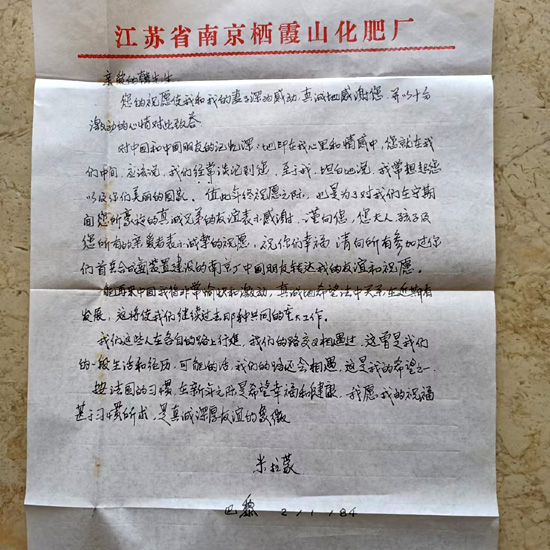 江苏省南京栖霞山化肥厂
亲爱的韩先生
您的祝愿使我和我的妻子深为感动,真诚地感谢您,并以十分
激动的心情对此致答
对中国和中国朋友的记忆深深地印在我心里和情感中,您就在我
们中间,应该说,我们经常谈论到您,至于我,坦白地说,我常想起您
以及你们美丽的国家。值此年终祝愿之际,也是为了对我们在宁期
间您所给予的真诚兄弟的友谊表示感谢,谨向您,您夫人,孩子及
您所有的亲爱者表示诚挚的祝愿,祝你们幸福,请向所有参加过你
们首套合成氨装置建设的南京厂中国朋友转达我的友谊和祝愿。
能再来中国我将非常愉快和激动,真诚地希望法中关系在近期有
发展,这将使我们继续过去那种共同的重大工作。
我们这些人在各自的路上行进,我们的路交叉相遇过,这曾是我们
的一段生活和经历,可能的话,我们的路还会相遇,这是我的希望之一
按法国的习惯,在新年之际是希望幸福和健康,我愿我的祝福
甚于习惯所求,是真诚深厚友谊的象徵
米拉蒙
巴黎 2/1/84